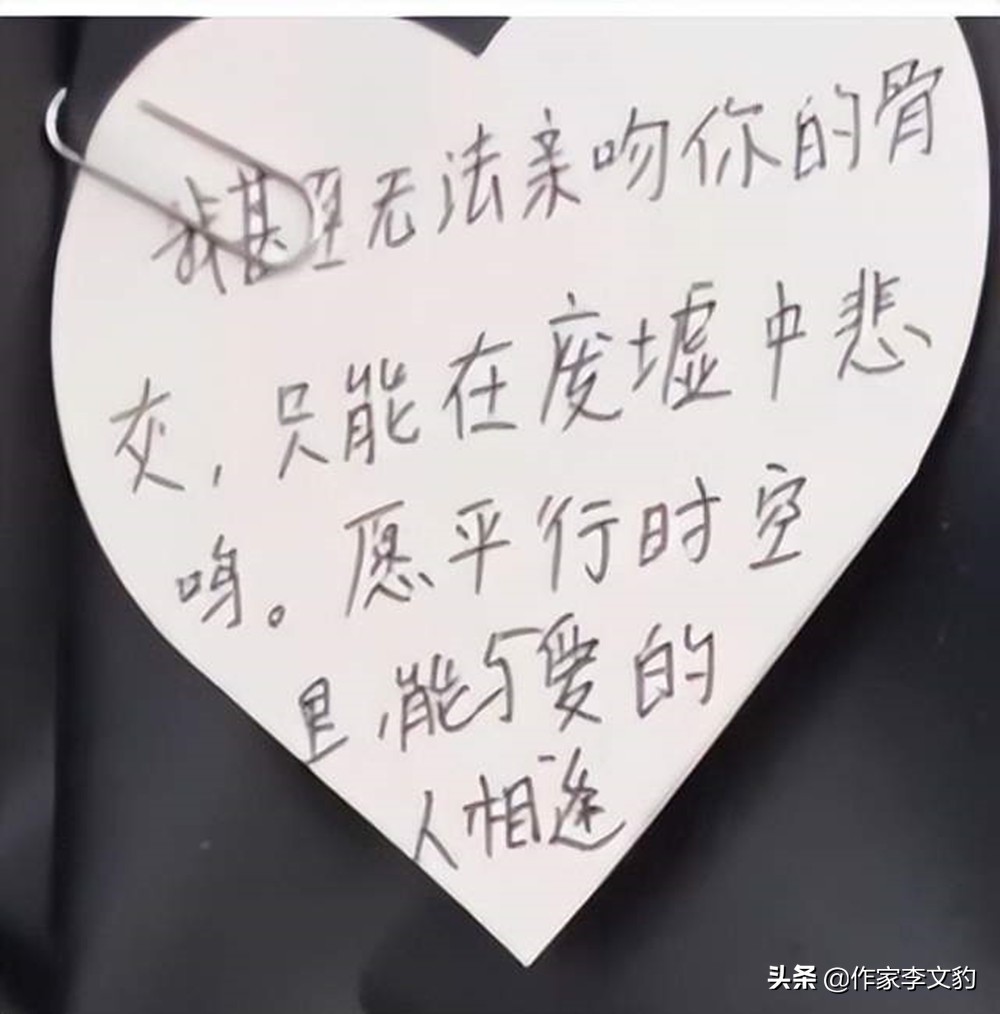 我甚至无法亲吻你的骨
灰，只能在废墟中悲
鸣。愿平行时空
里,能与爱的
人相逢
头条 @作家李文豹